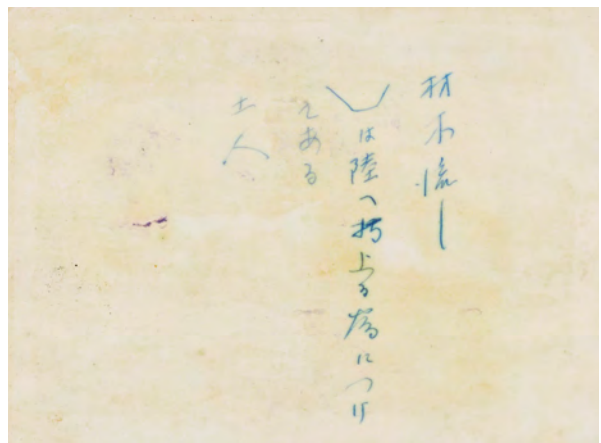 材木流し
は陸へ揚上る為につけ
てある
土人